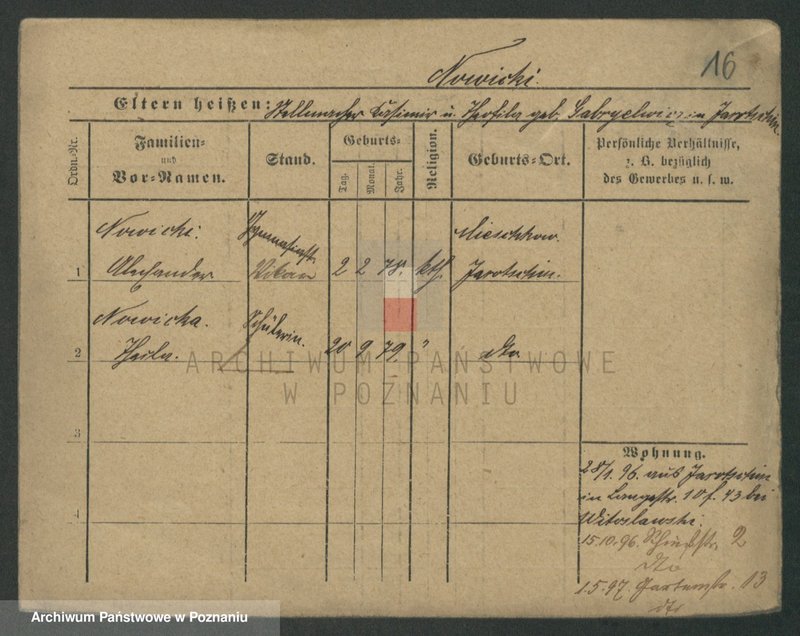 16
Nowicki.
Eltern heißen: Stellmacher Casimir u. Theofila geb. Gabryelewicz in Jarotschin
Ordn.-Nr.
Familien- und Vor-Namen.
Stand.
Geburts-
Tag.
Monat.
Jahr.
Religion.
Geburts-Ort.
Persönliche Verhältnisse,
z. B. bezüglich
des Gewerbes u. s. w.
Nowicki.
Mieschkow
1 Alexander 2 2 78. kth. Jarotschin.
Nowicka. Schülerin.
2 20 9 79. " dto
3
4
Wohnung.
28/1. 96. aus Jarotschin
in Langestr. 10 f. 43 bei
Witoslawski.
15.10.96. 2
dto
1.5.97. Gartenstr. 13
dto
ARCHIWUM PAŃSTWOWE
W POZNANIU
Archiwum Państwowe w Poznaniu